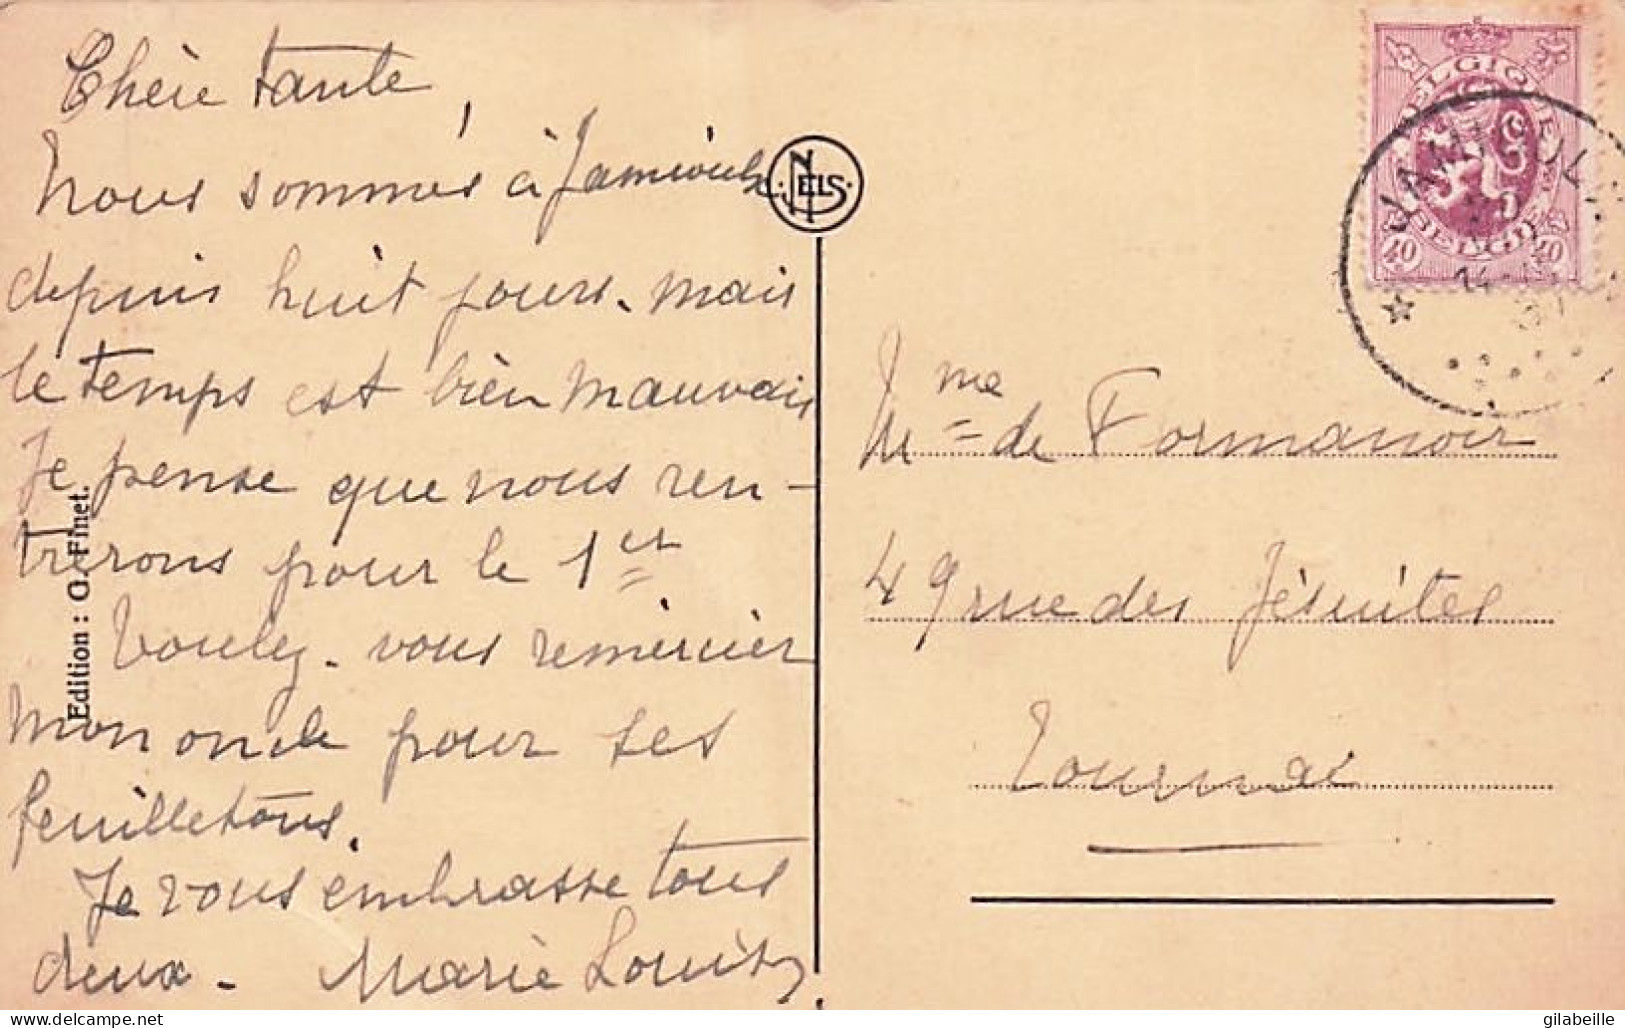 Chère tante,
Nous sommes à Jamioulx
depuis huit jours. mais
le temps est bien mauvais
Je pense que nous ren-
trerons pour le 1er
Voulez-vous remercier
mon oncle pour ses
feuilletons.
Je vous embrasse tous
deux. Marie Louise
Edition : O. Finet.
NELS
BELGIQUE
BELGIE
40 40
JAMIOULX
Mme de Formanoir
49 rue des Jésuites
Tournai
delcampe.net
gilabeille